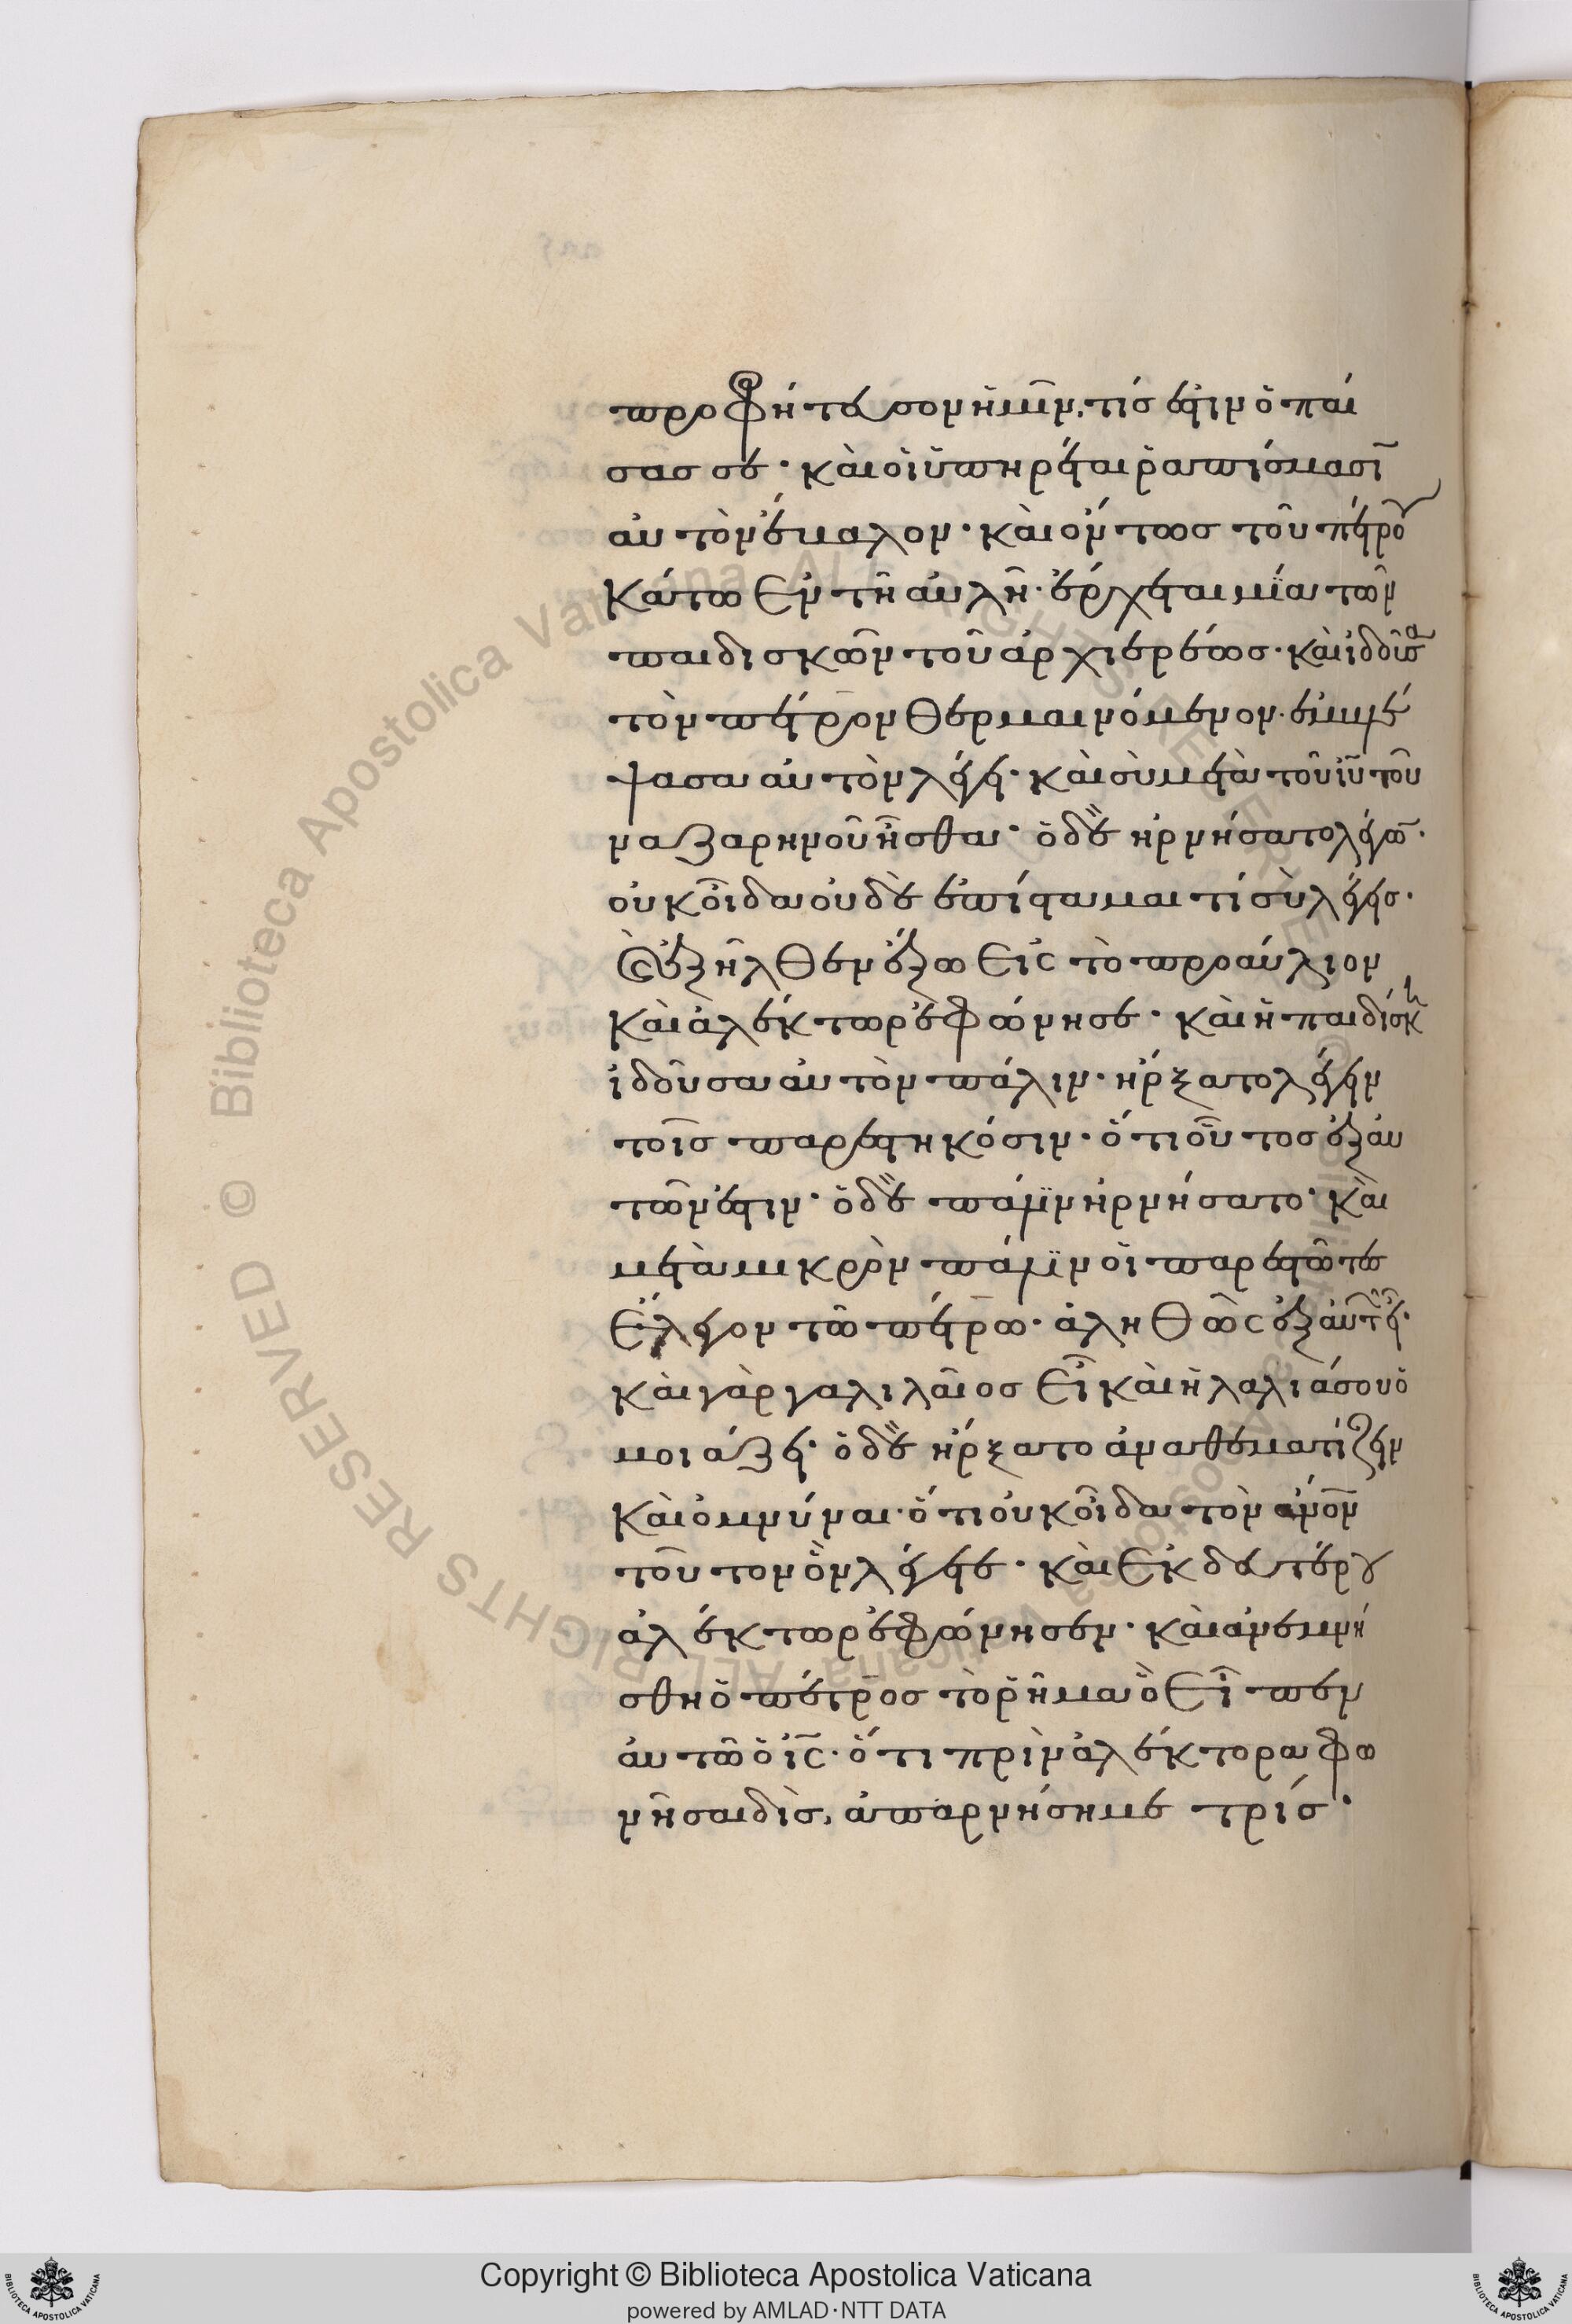 προφήτευσον ἡμῖν, τίς ἐστιν ὁ παί
σας σε· καὶ οἱ ὑπηρέται ῥαπίσμασϊ
αὐτὸν ἔμαλον· καὶ ὄντος τοῦ πέτρου
Κάτω Ἐν τῆ αὐλῆ· ἔρχεται μία τῶν
παιδισκῶν τοῦ ἀρχιερέως· καὶ ἰδοῦσα
τὸν πέτρον θερμαινόμενον· ἐμμλέ
ψασα αὐτὸν λέγει· καὶ σὺ μετὰ τοῦ ἰῦ τοῦ
ναζαρηνοῦ ἦσθα· ὁ δὲ ἠρνήσατο λέγω̅·
οὐκ οἶδα οὐδὲ ἐπίσταμαι τί σὺ λέγεις·
Καὶ ἐξῆλθεν ἔξω Εἰς τὸ προαύλιον
Καὶ ἀλέκτωρ ἐφώνησε· καὶ ἡ παιδίσκη
ἰδοῦσα αὐτὸν πάλιν· ἤρξατο λέγειν
τοῖς παρεστηκόσιν· ὅτι οὗτος ἐξ αὐ
τῶν ἐστιν· ὁ δὲ πάλιν ἠρνήσατο· καὶ
μετὰ μικρὸν πάλιν οἱ παρεστῶτες
Ἔλεγον τῶ πέτρω· ἀληθῶς ἐξ αὐτῶν εἶ·
καὶ γὰρ γαλιλαῖος Εἶ καὶ ἡ λαλιά σου ὁ
μοιάζει· ὁ δὲ ἤρξατο ἀναθεματίζειν
Καὶ ὀμνύναι· ὅτι οὐκ οἶδα τὸν α̅ν̅ο̅ν̅
τοῦτον ὃν λέγετε· καὶ Ἐκ δευτέρου
ἀλέκτωρ ἐφώνησεν· καὶ ἀνεμνή
σθη ὁ πέτρος τὸ ῥῆμα ὃ Εἶπεν
αὐτῶ ὁ ἰς̅· ὅτι πρὶν ἀλέκτορα φω
νῆσαι δὶς, ἀπαρνήση με τρίς·
Copyright © Biblioteca Apostolica Vaticana
powered by AMLAD·NTT DATA